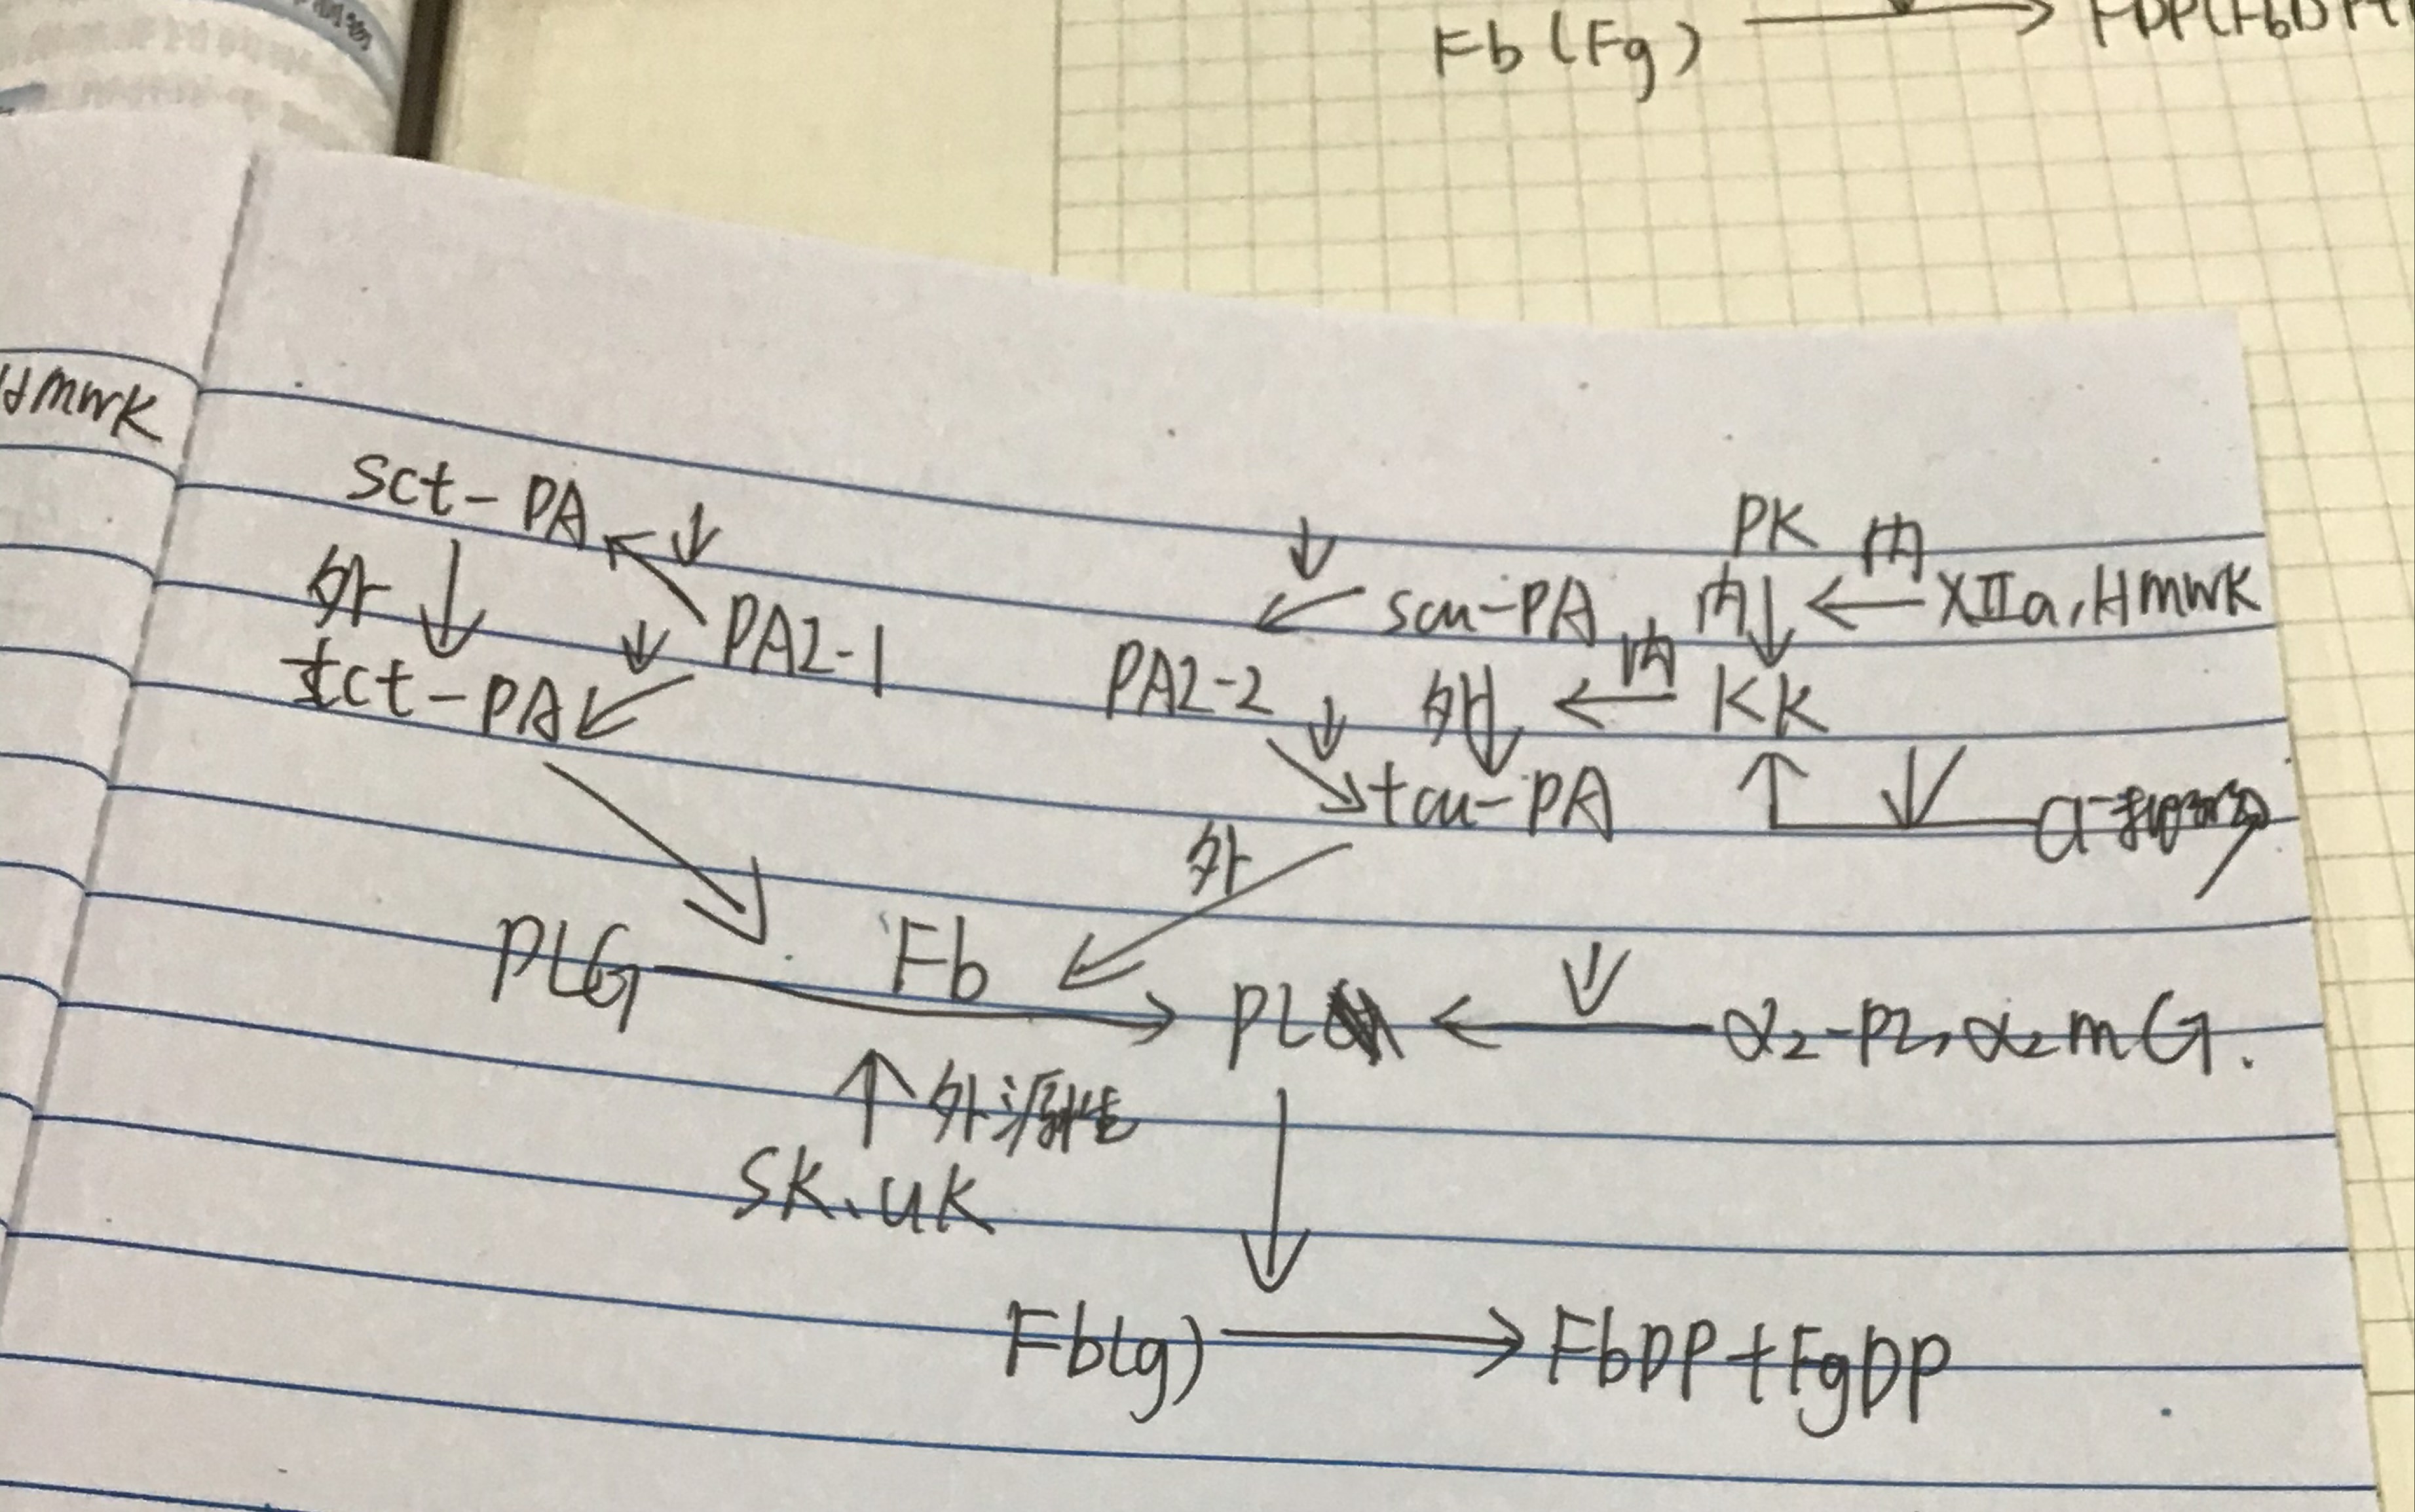 Fb (Fg)
HMWK
sct-PA
PK 内
外 PAI-1 scu-PA 内 XIIa, HMWK
tct-PA PAI-2 外 内 KK
tcu-PA
外
PLG Fb PL α2-PI, α2MG.
外源性
SK、UK
Fb(g) FbDP+FgDP